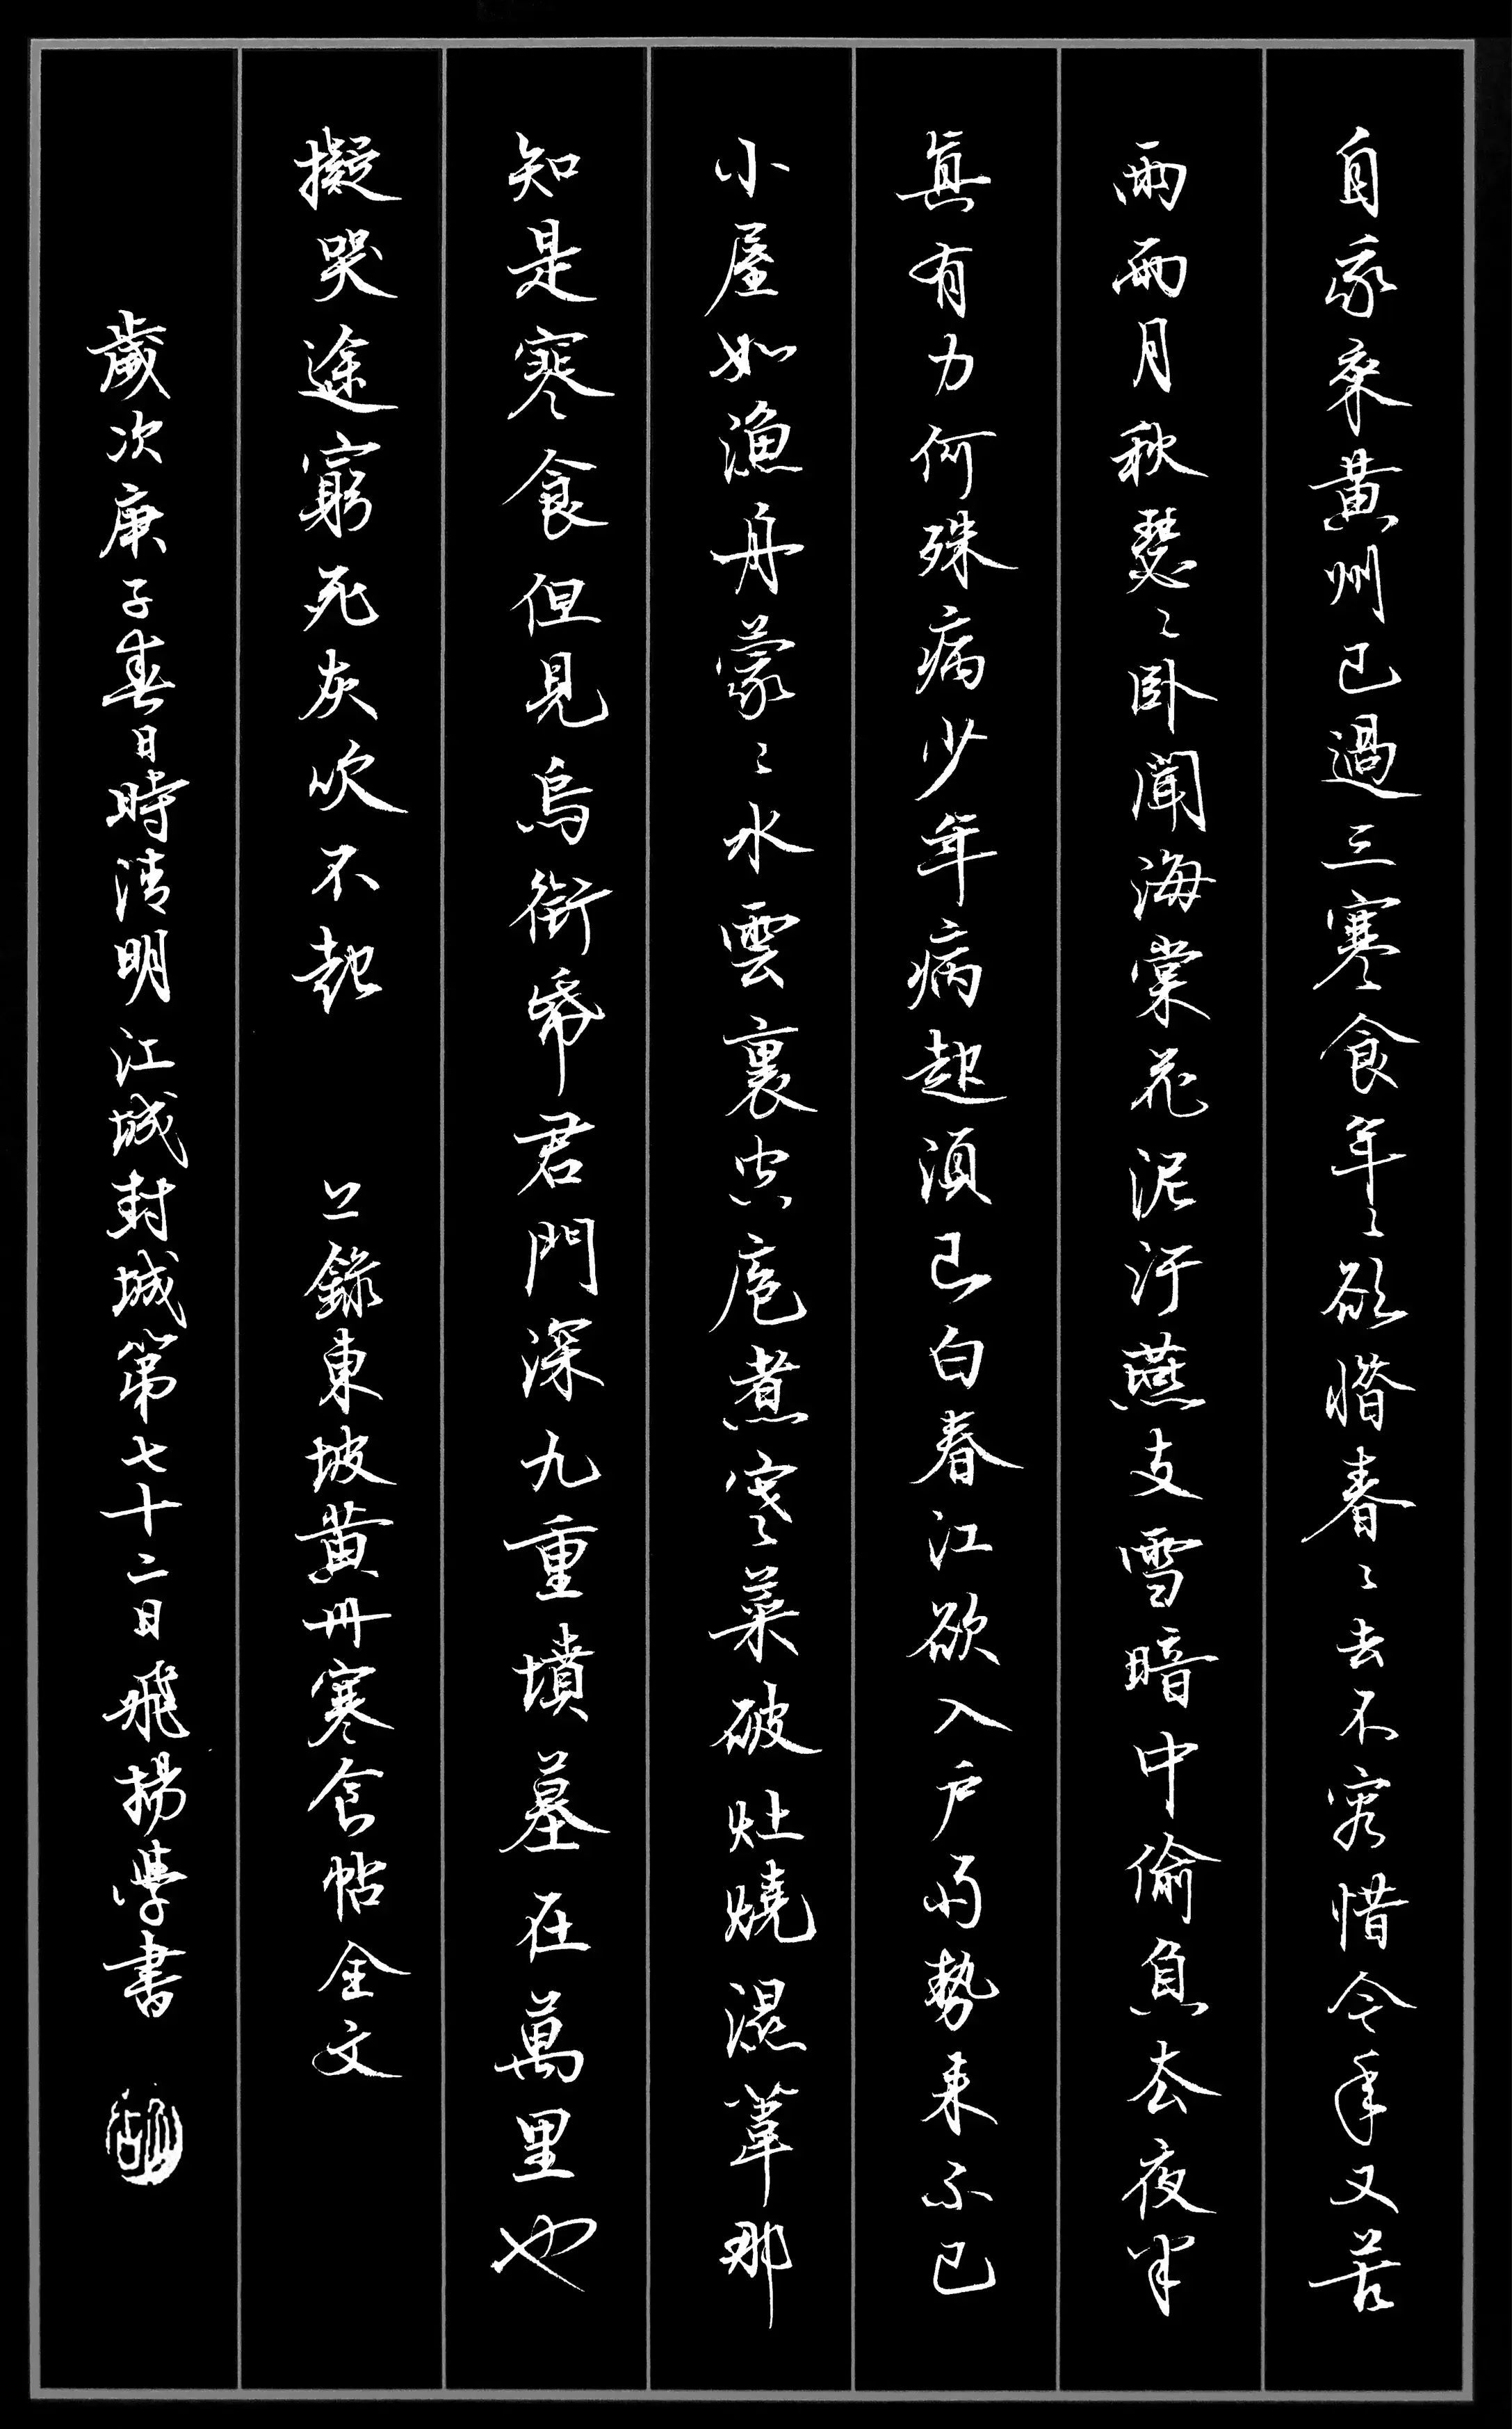 自我来黄州已過三寒食年〻欲惜春〻去不容惜今年又苦
雨兩月秋瑟〻卧聞海棠花泥汙燕支雪暗中偷負去夜半
真有力何殊病少年病起須已白春江欲入户雨勢来不已
小屋如漁舟蒙〻水雲裏空庖煮寒菜破灶燒濕葦那
知是寒食但見烏銜帋君門深九重墳墓在萬里也
擬哭途窮死灰吹不起 上錄東坡黄州寒食帖全文
歲次庚子春日時清明江城封城第七十二日飛揚學書